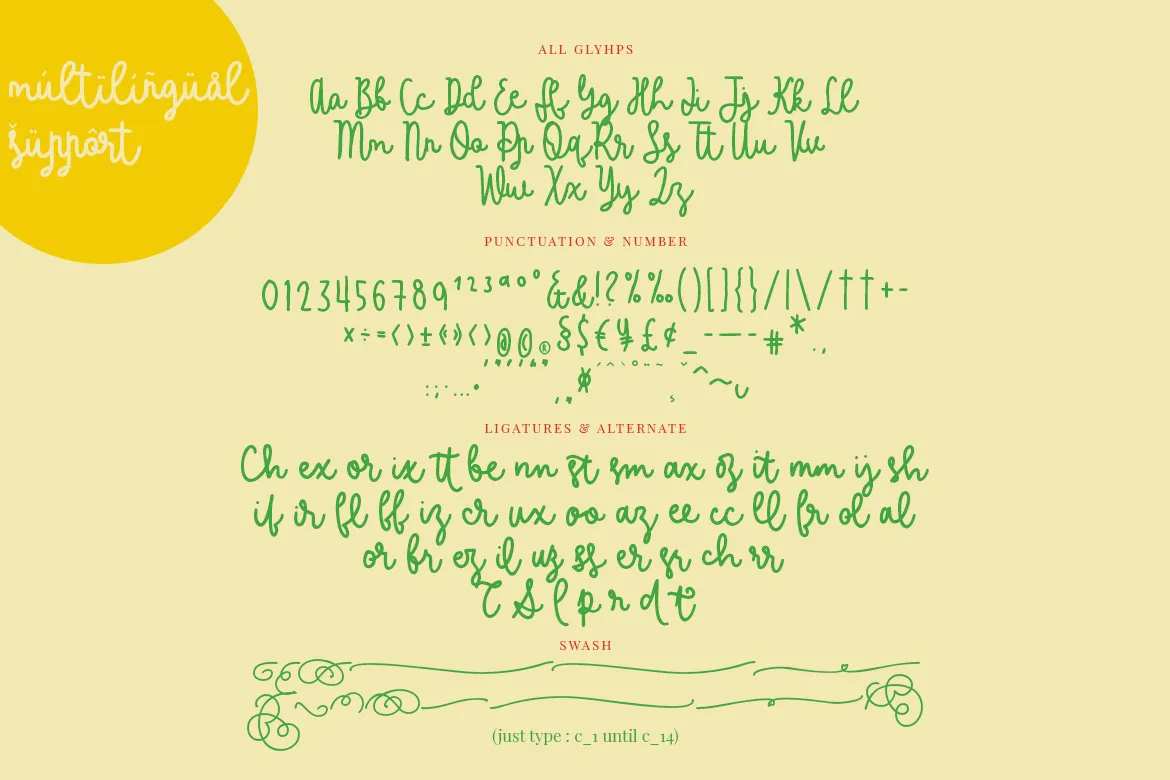 múltilíñgüål
šüppôrt
ALL GLYHPS
Aa Bb Cc Dd Ee Ff Gg Hh Ii Jj Kk Ll
Mm Nn Oo Pp Qq Rr Ss Tt Uu Vv
Ww Xx Yy Zz
PUNCTUATION & NUMBER
0123456789¹²³ªº°&&!?%‰()[]{}/|\/††+-
×÷=<>±«»‹›@©®§$€¥£¢_-—-#*.,
:;·...•
LIGATURES & ALTERNATE
Ch ex or ix tt be nn st sm ax oz it mm ij sh
if ir fl ff iz cr ux oo az ee cc ll fr ol al
or br ez il uz ss er sr ch rr
T S l p r d t
SWASH
(just type : c_1 until c_14)